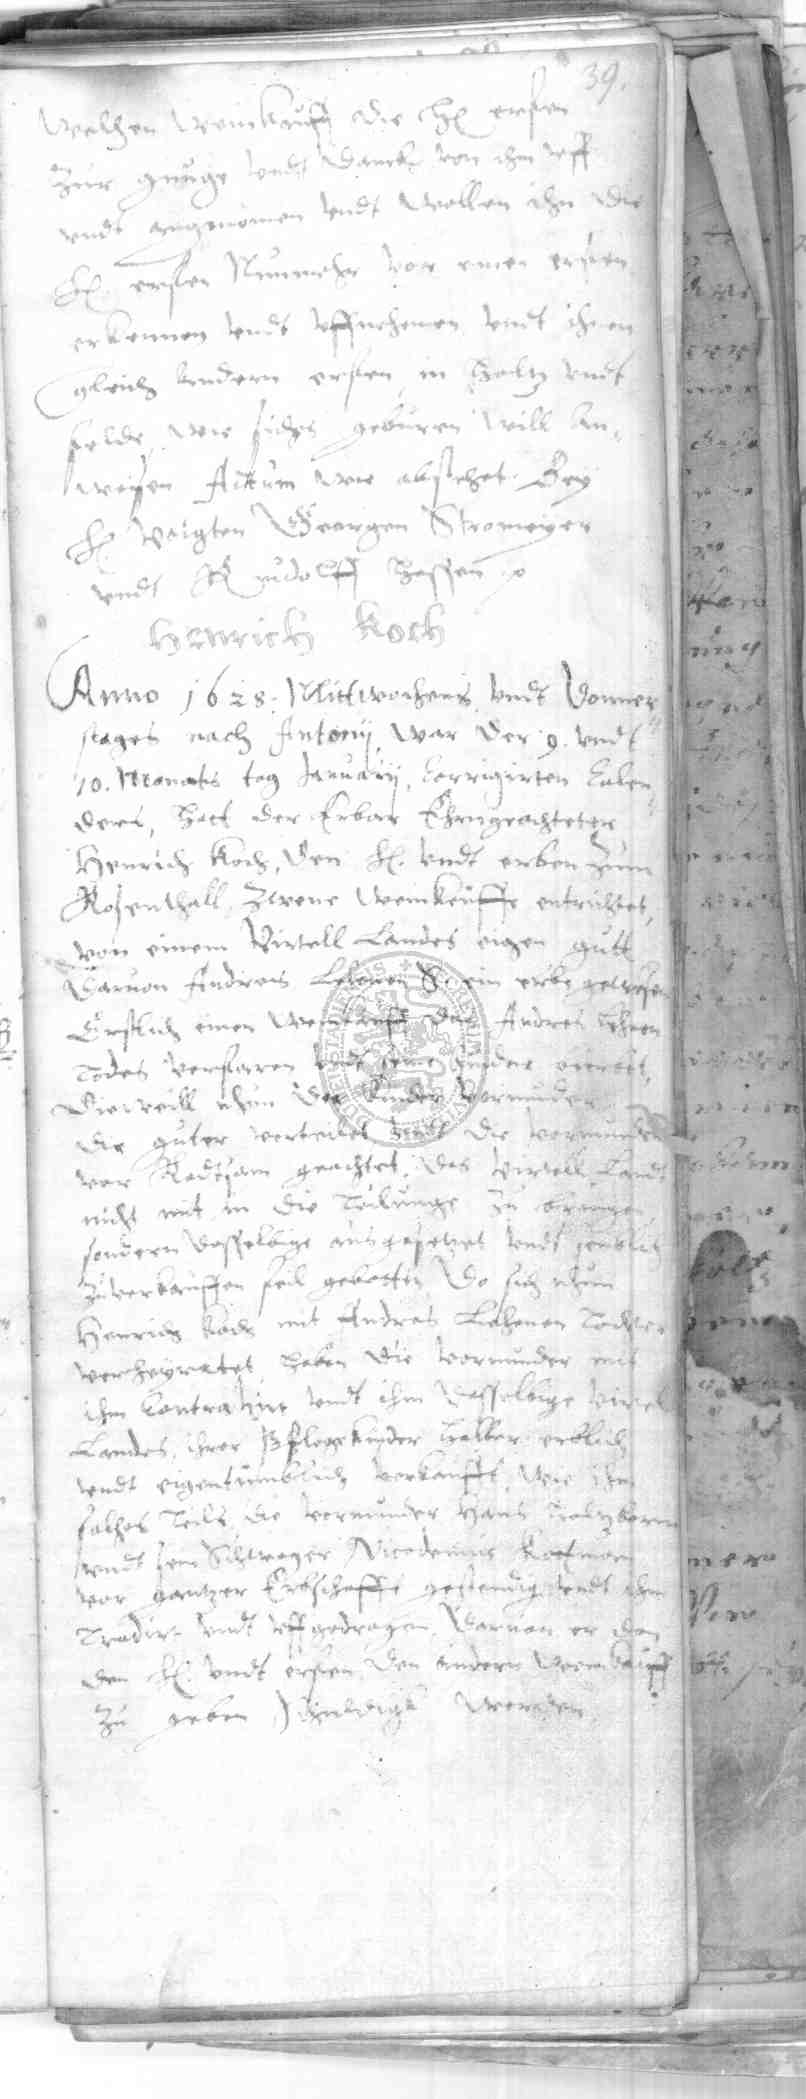 39.
Welchen Weinkauff die H. erben
Zur gnuge undt Danck von ihm uff
undt angenomen undt Wollen ihn die
H. erben Nunmehr vor einen erben
erkennen undt uffnehmen undt ihnen
gleich andern erben in Holtz undt
felde wie sichs geburen will an
weisen Actum wie obstehet. Bey
H. Voigten Georgen Stromeyer
undt Rudolff Hassen
Henrich Koch
Anno 1628. Mittwochens undt Donner
stages nach Antonij, War der 9. undt
10. Monats tag Januarij, Corrigirten Calen
ders, Hatt der Erbar Ehrngeachteter
Henrich Koch, den H. undt erben Zum
Rosenthall Zwene Weinkeuffe entrichtet,
von einem Virtell Landes eigen gutt
Daruon Andreas ein erbe gewesen
Erstlich einen Weinkauff das Andres
Todes verstorben undt seine kinder
Dieweill nhun der kinder Vormunder
die guter verteilet undt die vormunder
vor Radtsam geachtet, das virtell Landt
nicht mit in die Teilunge zu brengen
sondern dasselbige ausgesetzet undt
zuverkauffen feil gebotten Do sich nhun
Henrich Koch mit Andres Tochter
verheyratet, haben die vormunder mit
ihm Contrahirt undt ihm dasselbige virtel
Landes, ihrer Pflegekinder halber erblich
undt eigentumblich verkaufft, Wie ihm
solches Teils die vormunder Hans
undt sein Schweger Nicodemus
vor gantzer Erbschafft gestendig undt ihm
Tradirt undt uffgedragen, Daruon er dan
den H. undt erben, den andern Weinkauff
zu geben schuldigk worden